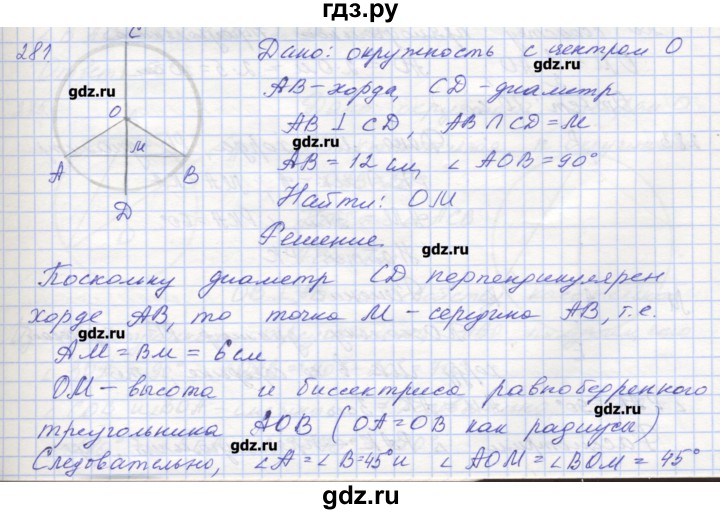 гдз.ру
281
C
O
M
A
B
D
gdz.ru
Дано: окружность с центром O
gdz.ru
AB-хорда, CD-диаметр
AB ⊥ CD, AB ∩ CD = M
AB = 12 см, ∠ AOB = 90°
Найти: OM
Решение.
gdz.ru
Поскольку диаметр CD перпендикулярен
хорде AB, то точка M - середина AB, т.е.
gdz.ru
AM = BM = 6 см
OM - высота и биссектриса равнобедренного
gdz.ru
треугольника AOB (OA=OB как радиусы)
gdz.ru
Следовательно, ∠A = ∠B=45° и ∠ AOM = ∠BOM = 45°
gdz.ru